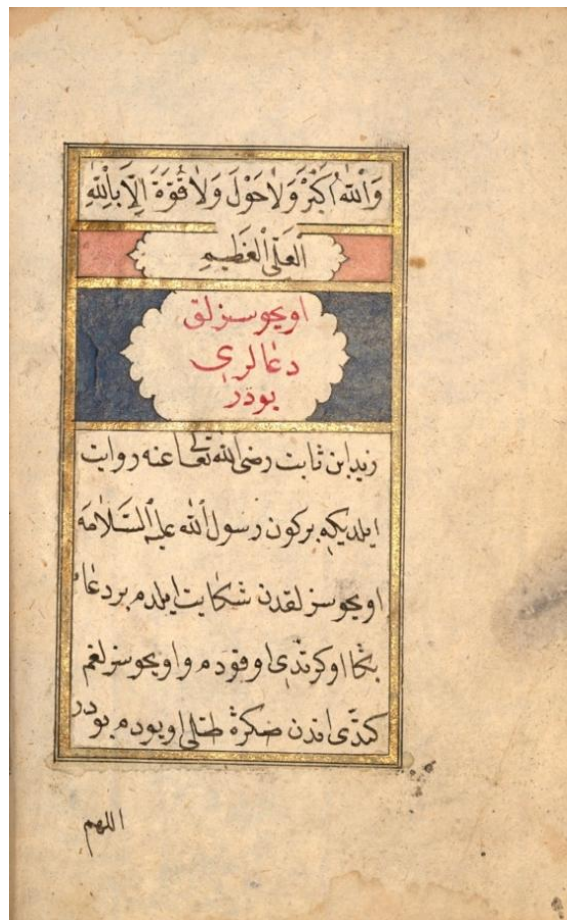 وَاللّٰهُ اَكْبَرُ وَلَا حَوْلَ وَلَا قُوَّةَ اِلَّا بِاللّٰهِ
الْعَلِىِّ الْعَظِيمِ
اويخوسزلق
دعالرى
بودر
زيد ابن ثابت رضى الله تعالى عنه روايت
ايلديكه بركون رسول الله عليه السلامه
اويخوسزلقدن شكايت ايلدم بر دعاء
بكا اوكرتدى اوقودم و اويخوسزلغم
كتدى اندن صكره طتلى اويودم بودر
اللهم